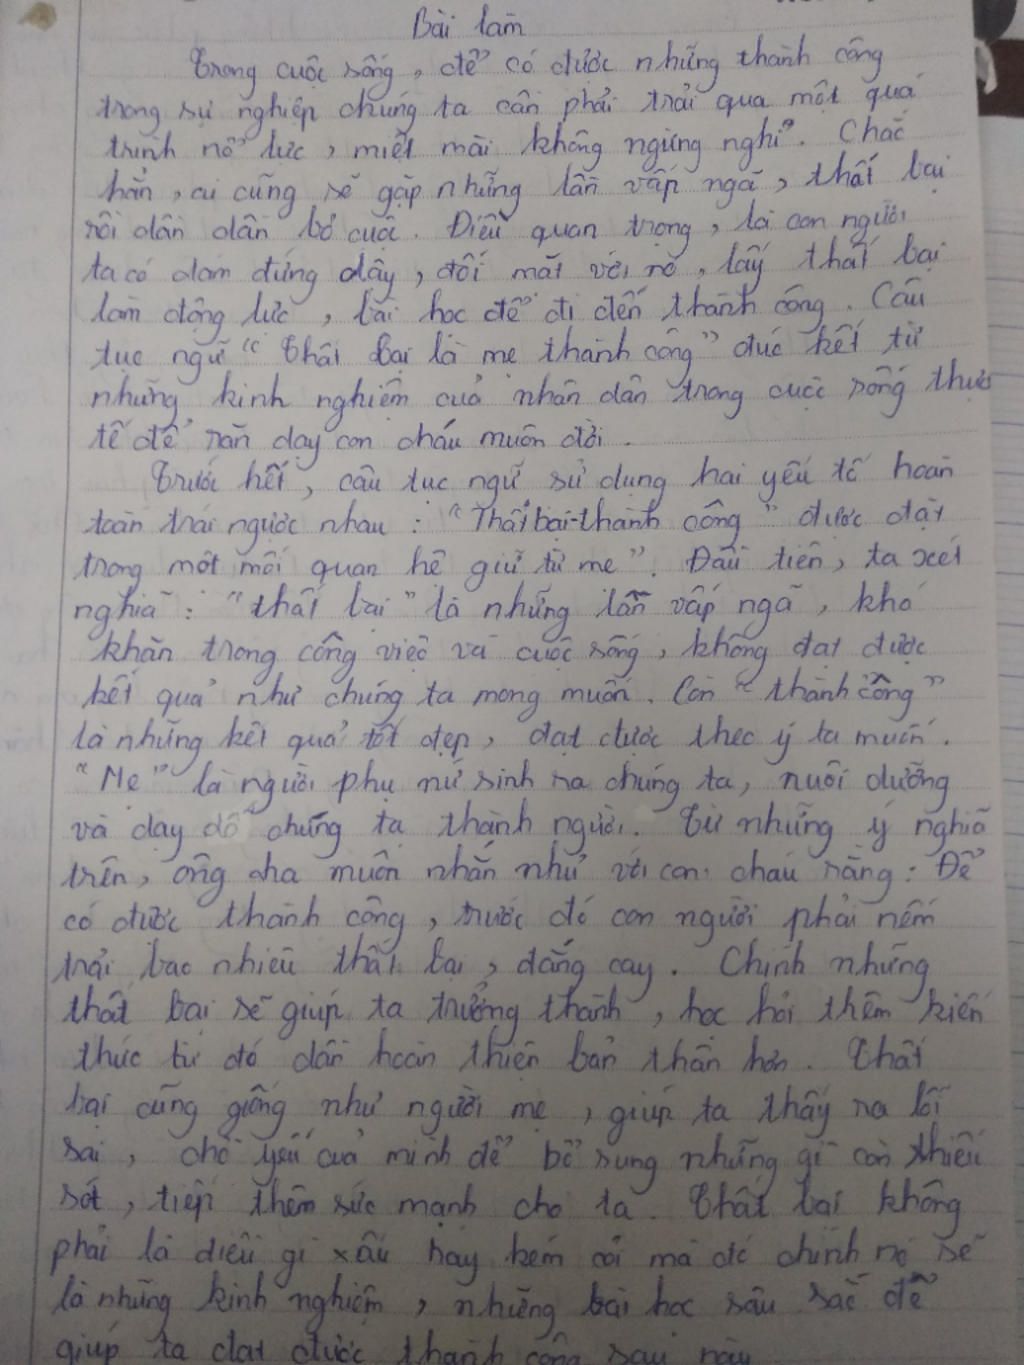 Bài làm
Trong cuộc sống, để có được những thành công
trong sự nghiệp chúng ta cần phải trải qua một quá
trình nỗ lực, miệt mài không ngừng nghỉ. Chắc
hẳn, ai cũng sẽ gặp những lần vấp ngã, thất bại
rồi dần dần bỏ cuộc. Điều quan trọng, là con người
ta có dám đứng dậy, đối mặt với nó, lấy thất bại
làm động lực, bài học để đi đến thành công. Câu
tục ngữ "Thất bại là mẹ thành công" đúc kết từ
những kinh nghiệm của nhân dân trong cuộc sống thực
tế để răn dạy con cháu muôn đời.
Trước hết, câu tục ngữ sử dụng hai yếu tố hoàn
toàn trái ngược nhau: "Thất bại-thành công" được đặt
trong một mối quan hệ giữ từ mẹ". Đầu tiên, ta xét
nghĩa: "thất bại" là những lần vấp ngã, khó
khăn trong công việc và cuộc sống, không đạt được
kết quả như chúng ta mong muốn. Còn "thành công"
là những kết quả tốt đẹp, đạt được theo ý ta muốn.
"Mẹ" là người phụ nữ sinh ra chúng ta, nuôi dưỡng
và dạy dỗ chúng ta thành người. Từ những ý nghĩa
trên, ông cha muốn nhắn nhủ với con cháu rằng: Để
có được thành công, trước đó con người phải nếm
trải bao nhiêu thất bại, đắng cay. Chính những
thất bại sẽ giúp ta trưởng thành, học hỏi thêm kiến
thức từ đó dần hoàn thiện bản thân hơn. Thất
bại cũng giống như người mẹ, giúp ta thấy ra lỗi
sai, chỗ yếu của mình để bổ sung những gì còn thiếu
sót, tiếp thêm sức mạnh cho ta. Thất bại không
phải là điều gì xấu hay kém cỏi mà đó chính nó sẽ
là những kinh nghiệm, những bài học sâu sắc để
giúp ta đạt được thành công sau này